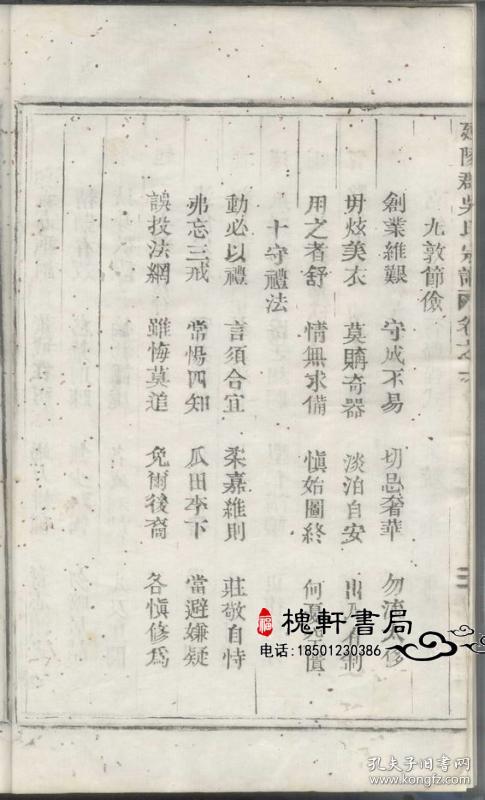 延陵郡吳氏宗譜 卷之
九敦節儉
創業維艱 守成不易 切忌奢華 勿流太侈
毋炫美衣 莫購奇器 淡泊自安 出入有制
用之者舒 情無求備 慎始圖終 何憂匱
十守禮法
動必以禮 言須合宜 柔嘉維則 莊敬自持
弗忘三戒 常惕四知 瓜田李下 當避嫌疑
誤投法網 雖悔莫追 免爾後裔 各慎修為
槐軒書局
电话:18501230386
孔夫子旧书网
www.kongfz.com